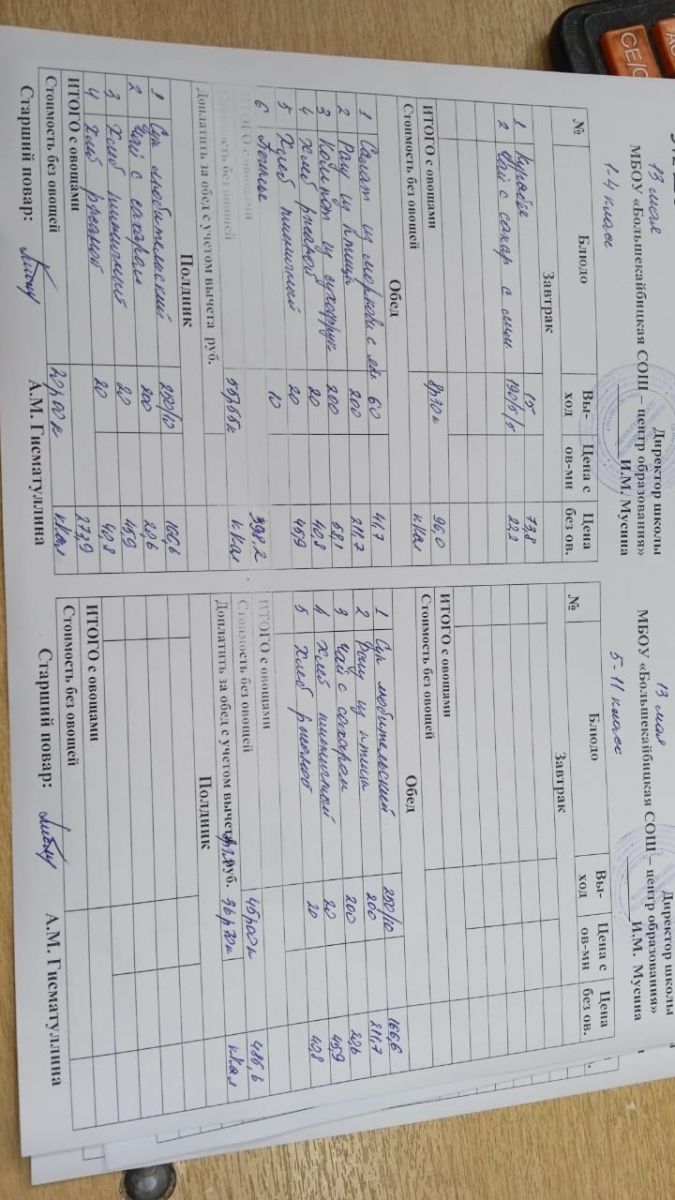 Директор школы
МБОУ «Большекайбицкая СОШ – центр образования»
И.М. Мусина
13 мая
1-4 класс
№ Блюдо Вы-ход Цена с ов-ми Цена без ов.
Завтрак
1 Курабье 15 73,8
2 Чай с сахар с лим 190/5/5 22,2
ИТОГО с овощами 8р30к 96,0
Стоимость без овощей ккал
Обед
1 Салат из моркови с ябл 60 41,7
2 Рагу из птицы 200 211,7
3 Компот из сухофрук 200 58,1
4 Хлеб ржаной 20 40,8
5 Хлеб пшничный 20 45,9
6 Печенье 10
ИТОГО с овощами 398,2
Стоимость без овощей 55р55к ккал
Доплатить за обед с учетом вычета руб.
Полдник
1 Суп любительский 250/10 166,6
2 Чай с сахаром 200 20,6
3 Хлеб пшничный 20 45,9
4 Хлеб ржаной 20 40,8
ИТОГО с овощами 273,9
Стоимость без овощей 20р00к ккал
Старший повар: А.М. Гисматуллина
Директор школы
МБОУ «Большекайбицкая СОШ – центр образования»
И.М. Мусина
13 мая
5-11 класс
№ Блюдо Вы-ход Цена с ов-ми Цена без ов.
Завтрак
ИТОГО с овощами
Стоимость без овощей
Обед
1 Суп любительский 250/10 166,6
2 Рагу из птицы 200 211,7
3 Чай с сахаром 200 20,6
4 Хлеб пшничный 20 45,9
5 Хлеб ржаной 20 40,8
ИТОГО с овощами 485,6
Стоимость без овощей 46р00к ккал
Доплатить за обед с учетом вычета руб. 36р70к
Полдник
ИТОГО с овощами
Стоимость без овощей
Старший повар: А.М. Гисматуллина
CE/C